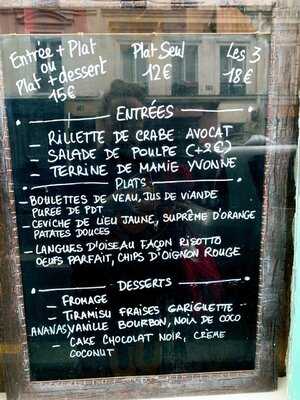 Entrée + Plat
ou
Plat + dessert
15€
Plat Seul
12€
Les 3
18€
ENTRÉES
- RILLETTE DE CRABE AVOCAT
- SALADE DE POULPE (+2€)
- TERRINE DE MAMIE YVONNE
PLATS
- BOULETTES DE VEAU, JUS DE VIANDE
PUREE DE PDT
- CEVICHE DE LIEU JAUNE, SUPRÊME D'ORANGE
PATATES DOUCES
- LANGURS D'OISEAU FAÇON RISOTTO
OEUFS PARFAIT, CHIPS D'OIGNON ROUGE
DESSERTS
- FROMAGE
- TIRAMISU FRAISES GARIGUETTE
ANANAS/VANILLE BOURBON, NOIX DE COCO
- CAKE CHOCOLAT NOIR, CRÈME
COCONUT